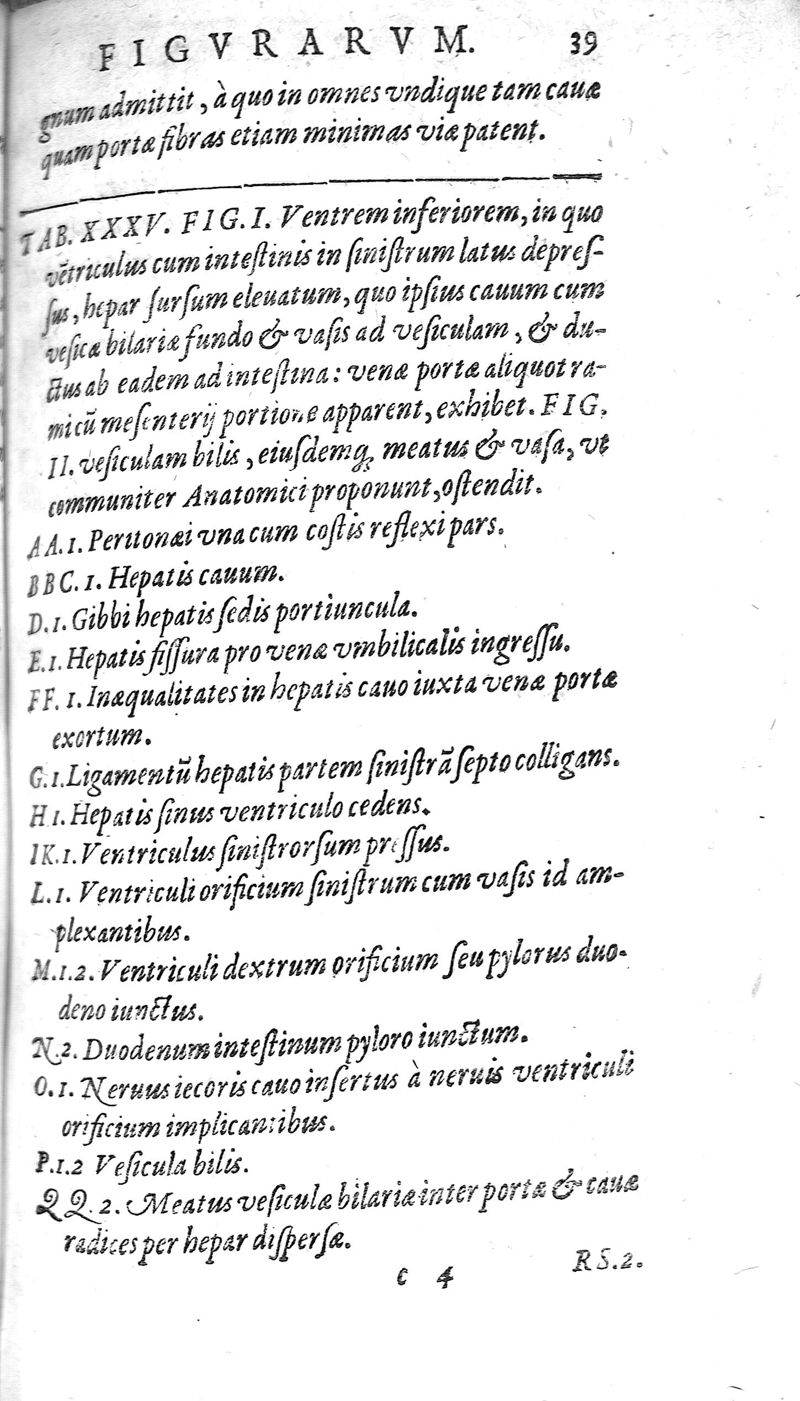 FIGVRARVM. 39
gnum admittit, à quo in omnes vndique tam cauæ
quam portæ fibras etiam minimas viæ patent.
TAB. XXXV. FIG. I. Ventrem inferiorem, in quo
vẽtriculus cum inteſtinis in ſiniſtrum latus depreſ-
ſus, hepar ſurſum eleuatum, quo ipſius cauum cum
veſicæ bilariæ fundo & vaſis ad veſiculam, & du-
ctus ab eadem ad inteſtina: venæ portæ aliquot ra-
mi cũ meſenterij portione apparent, exhibet. FIG.
II. veſiculam bilis, eiuſdemq; meatus & vaſa, vt
communiter Anatomici proponunt, oſtendit.
AA.1. Peritonæi vna cum coſtis reflexi pars.
BBC.1. Hepatis cauum.
D.1. Gibbi hepatis ſedis portiuncula.
E.1. Hepatis fiſſura pro venæ vmbilicalis ingreſſu.
FF.1. Inæqualitates in hepatis cauo iuxta venæ portæ
exortum.
G.1. Ligamentũ hepatis partem ſiniſtrã ſepto colligans.
H1. Hepatis ſinus ventriculo cedens.
IK.1. Ventriculus ſiniſtrorſum preſſus.
L.1. Ventriculi orificium ſiniſtrum cum vaſis id am-
plexantibus.
M.1.2. Ventriculi dextrum orificium ſeu pylorus duo-
deno iunctus.
N.2. Duodenum inteſtinum pyloro iunctum.
O.1. Neruus iecoris cauo inſertus à neruis ventriculi
orificium implicantibus.
P.1.2 Veſicula bilis.
QQ.2. Meatus veſiculæ bilariæ inter portæ & cauæ
radices per hepar diſperſæ.
C 4 RS.2.